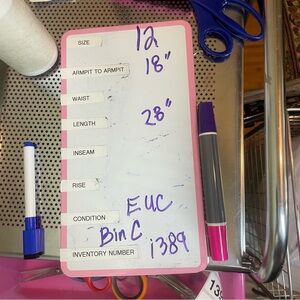 SIZE 12
ARMPIT TO ARMPIT 18"
WAIST
LENGTH 28"
INSEAM
RISE
CONDITION EUC
Bin C
INVENTORY NUMBER i389